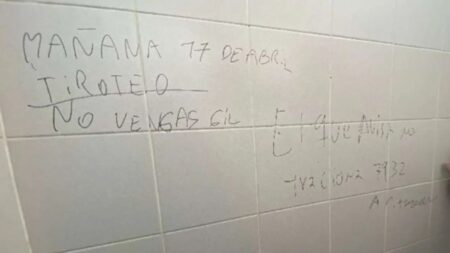 MAÑANA 17 DE ABRIL
TIROTEO
NO VENGAS GIL
El que avisa no
traiciona 7932